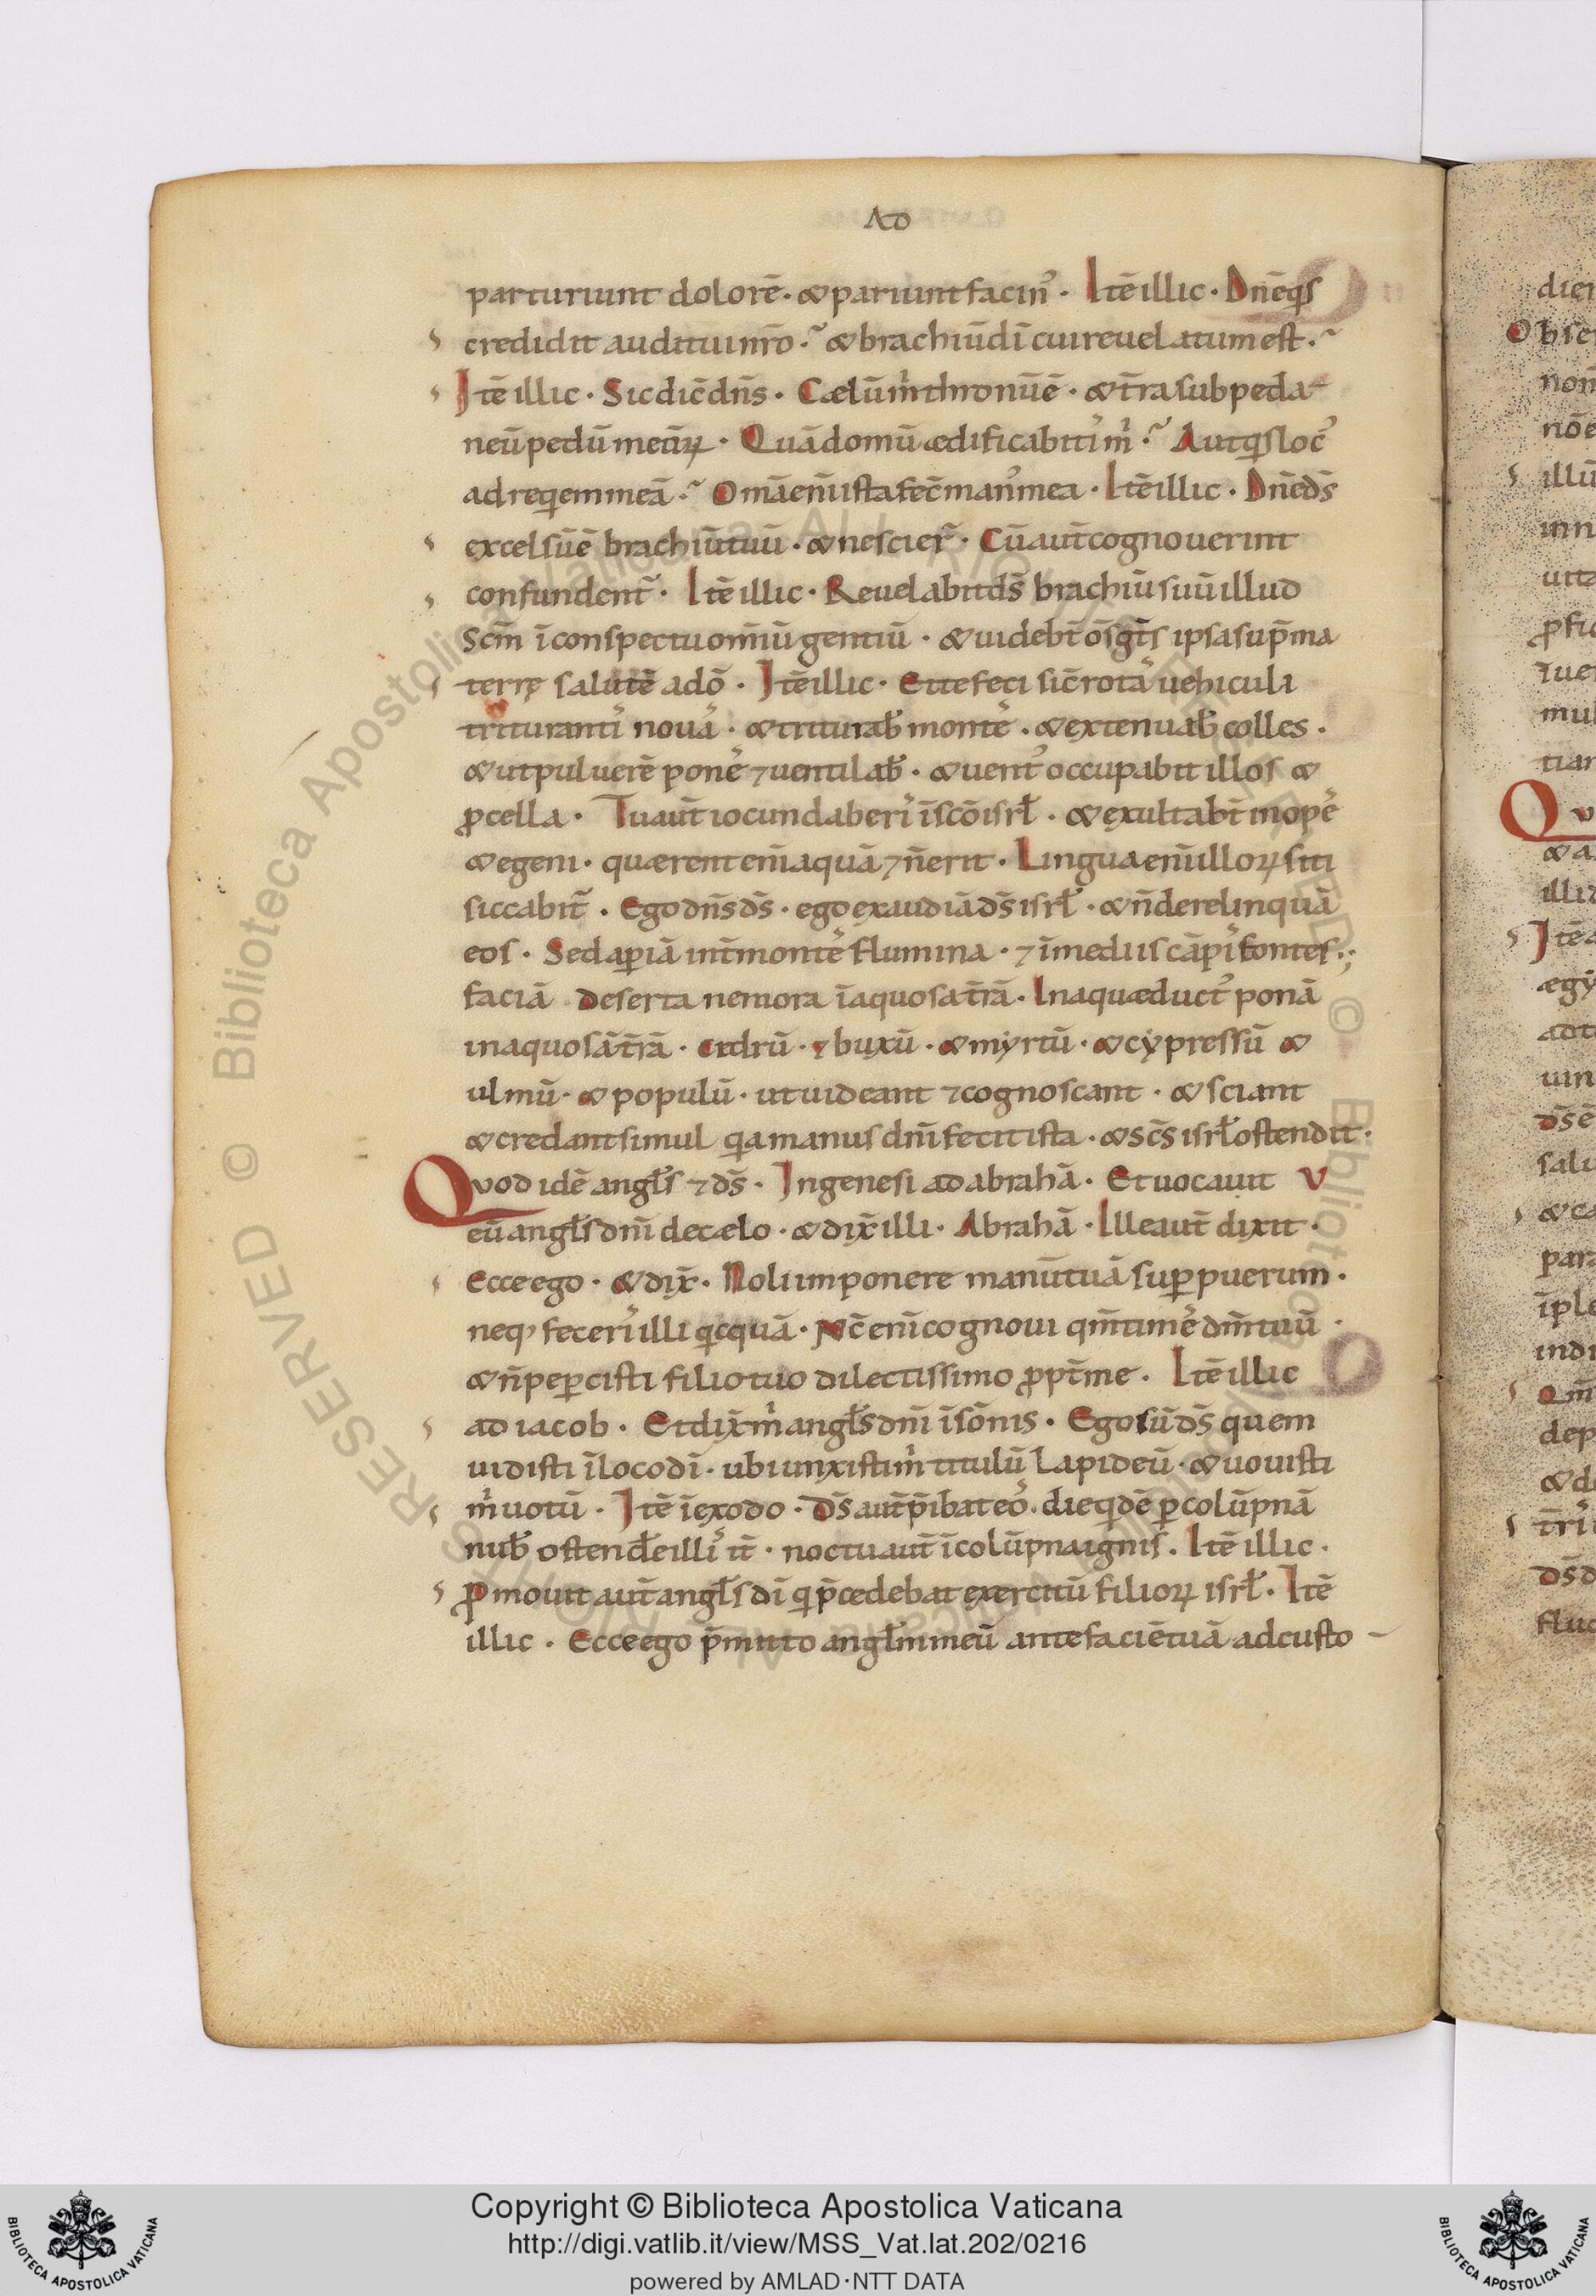 AD
parturiunt dolorē · & pariunt facin᾽ · Itē illic · Dn̄e q̄s
credidit auditui nr̄o · & brachiū dī cui reuelatum est ·
Itē illic · Sic dic̄ dn̄s · Cælū m̄ thronū ē · & t̄ra subpeda
neū pedū meūꝝ · Quā domū ædificabitᷤ m̄ · Aut q̄s loc᾽
ad requem meā · Om̄a en̄ ista fec̄ man᾽ mea · Itē illic · Dn̄e ds̄
excelsū ē brachiū tuū · & nescier̄ · Cū aut̄ cognouerint
confundent̄ · Itē illic · Reuelabit ds̄ brachiū suū illud
Scm̄ ī conspectu omniū gentiū · & uidebt̄ om̄s gt̄s ipsa sup̄ma
terrę salutē a dō · Itē illic · Et te feci sic̄ rotā uehicula
triturantᷤ nouā · & triturab̄ montē · & extenuab̄ colles ·
& ut puluerē ponē ⁊ uentilab̄ · & uent᾽ occupabit illos &
ꝓcella · Tu aut̄ iocundaberᷤ ī scō isrł · & exultabt̄ inopē
& egeni · quærent enī aquā ⁊ n̄ erit · Lingua enī illoꝝ siti
siccabit̄ · Ego dn̄s ds̄ · ego exaudiā ds̄ isrł · & n̄ derelinquā
eos · Sed apiā int̄ montē flumina · ⁊ ī mediis cāpᷤ fontes ·;
faciā deserta nemora ī aquosa t̄rā · In aquæduct᾽ ponā
inaquosā t̄rā · cedrū · ⁊ buxū · & myrtū · & cypressū &
ulmū · & populū · ut uideant ⁊ cognoscant · & sciant
& credant simul q̄a manus dn̄i fecit ista · & scs̄ isrł ostendit ·
Quod idē angłs ⁊ ds̄ · In genesi ad abrahā · Et uocauit V
eū angłs dn̄i de cælo · & dix̄ illi · Abrahā · Ille aut̄ dixit ·
Ecce ego · & dix̄ · Noli imponere manū tuā sup̄ puerum ·
neq; fecerᷤ illi q̄cquā · Nc̄ enī cognoui qm̄ timē dm̄ tuū ·
& n̄ pepercisti filio tuo dilectissimo ꝓpt̄ me · Itē illic
ad iacob · Et dix̄ m̄ angłs dn̄i ī som̄nis · Ego sū ds̄ quem
uidisti ī loco dī · ubi unxisti m̄ titulū lapideū · & uouisti
m̄ uotū · Itē ī exodo · Ds̄ aut̄ p̄ibat eō · die q̄dē ꝑ colūpnā
nub̄ ostende illᷤ it̄ · noctu aut̄ ī colūpna ignis · Itē illic ·
ꝓmouit aut̄ angłs dī q̄ p̄cedebat exercitū filioꝝ isrł · Itē
illic · Ecce ego p̄mitto angłm meū ante faciē tuā ad custo
Copyright © Biblioteca Apostolica Vaticana
http://digi.vatlib.it/view/MSS_Vat.lat.202/0216
powered by AMLAD·NTT DATA